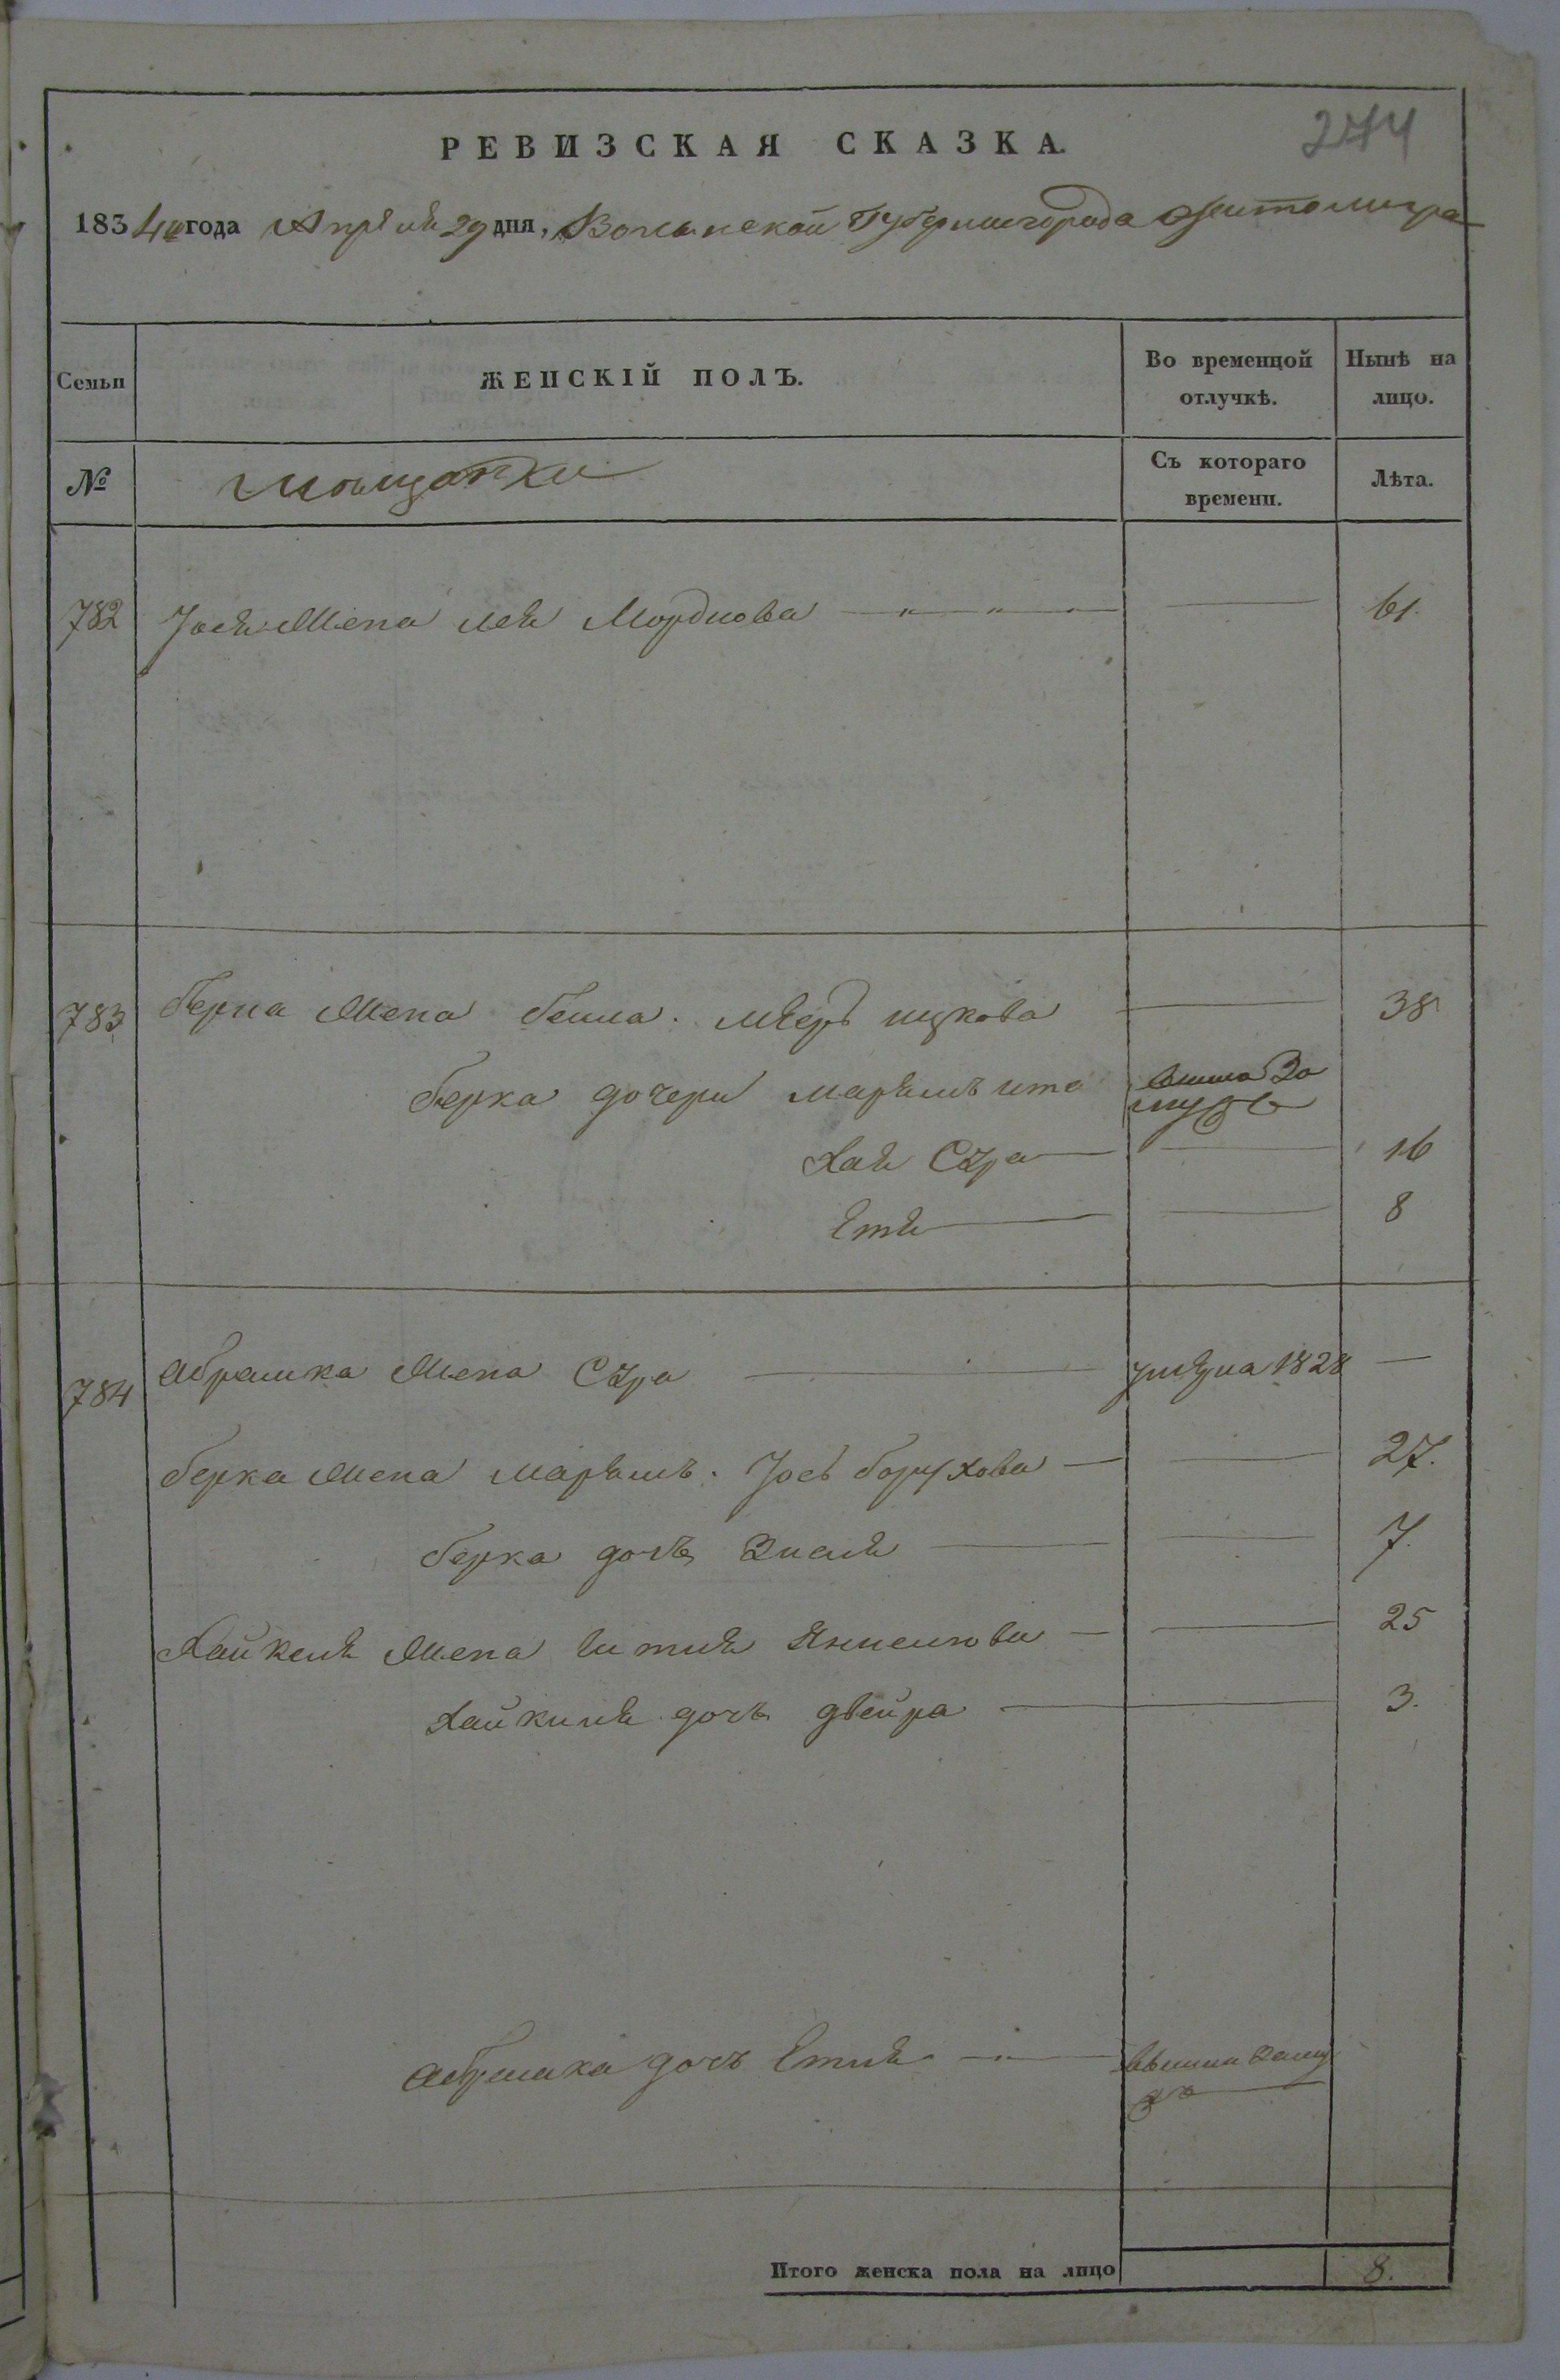 274
РЕВИЗСКАЯ СКАЗКА.
1834 года Апреля 29 дня, Волынской Губернии города Житомира
Семьи
ЖЕНСКІЙ ПОЛЪ.
Во временной отлучкѣ.
Нынѣ на лицо.
№
мещанки
Съ котораго времени.
Лѣта.
782 Йося Жена Лея Мордкова — — 61.
783 Берка Жена Бейла. Меер Ицкова — 38
Берка дочери Марьямъ Ита вышла За мужъ
Хая Сура — — 16
Етя — — 8
784 Абрамка Жена Сура — умерла 1828 —
Берка Жена Марьямъ. Йось Борухова — — 27.
Берка дочь Зисля — — 7.
Хайкеля Жена Янкелиова — — 25
Хайкиля дочь Двейра — 3.
Абрамка дочь Етля — вышла Заму
жъ
Итого женска пола на лицо 8.